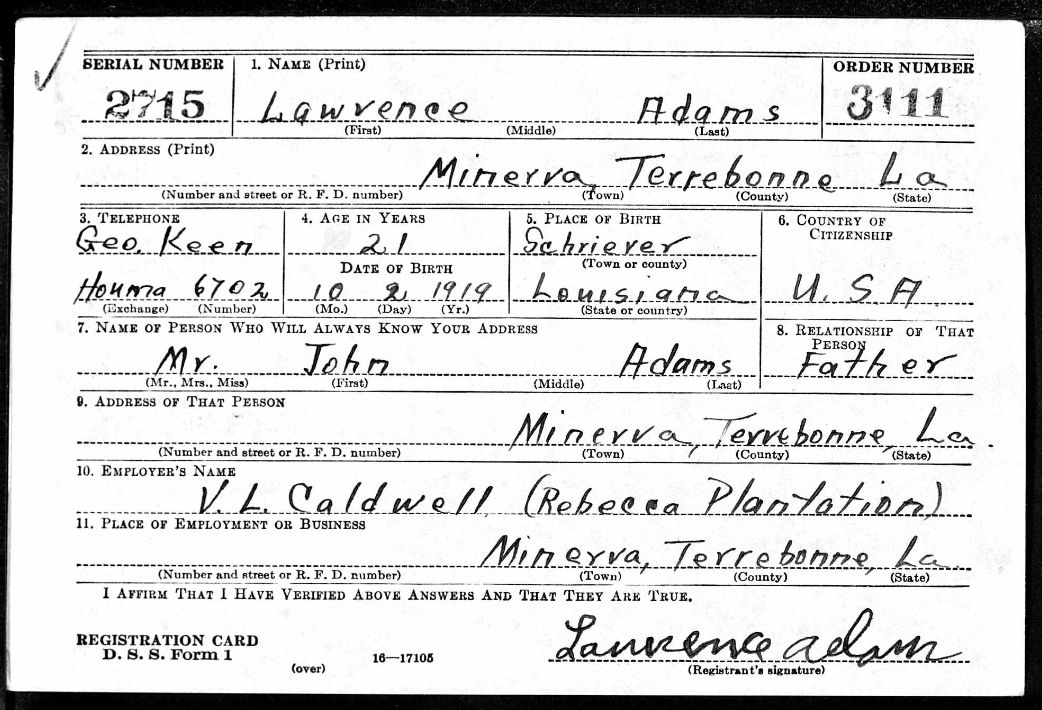 SERIAL NUMBER 1. NAME (Print) ORDER NUMBER
2715 Lawrence Adams 3111
(First) (Middle) (Last)
2. ADDRESS (Print)
Minerva, Terrebonne La
(Number and street or R. F. D. number) (Town) (County) (State)
3. TELEPHONE 4. AGE IN YEARS 5. PLACE OF BIRTH 6. COUNTRY OF
CITIZENSHIP
Geo. Keen 21 Schriever
(Town or county)
DATE OF BIRTH
Houma 6702 10 2 1919 Louisiana U. S A
(Exchange) (Number) (Mo.) (Day) (Yr.) (State or country)
7. NAME OF PERSON WHO WILL ALWAYS KNOW YOUR ADDRESS 8. RELATIONSHIP OF THAT
PERSON
Mr. John Adams Father
(Mr., Mrs., Miss) (First) (Middle) (Last)
9. ADDRESS OF THAT PERSON
Minerva, Terrebonne, La.
(Number and street or R. F. D. number) (Town) (County) (State)
10. EMPLOYER'S NAME
V. L. Caldwell (Rebecca Plantation)
11. PLACE OF EMPLOYMENT OR BUSINESS
Minerva, Terrebonne, La
(Number and street or R. F. D. number) (Town) (County) (State)
I AFFIRM THAT I HAVE VERIFIED ABOVE ANSWERS AND THAT THEY ARE TRUE.
REGISTRATION CARD
D. S. S. Form 1 Lawrence adam
(over) 16—17105 (Registrant's signature)